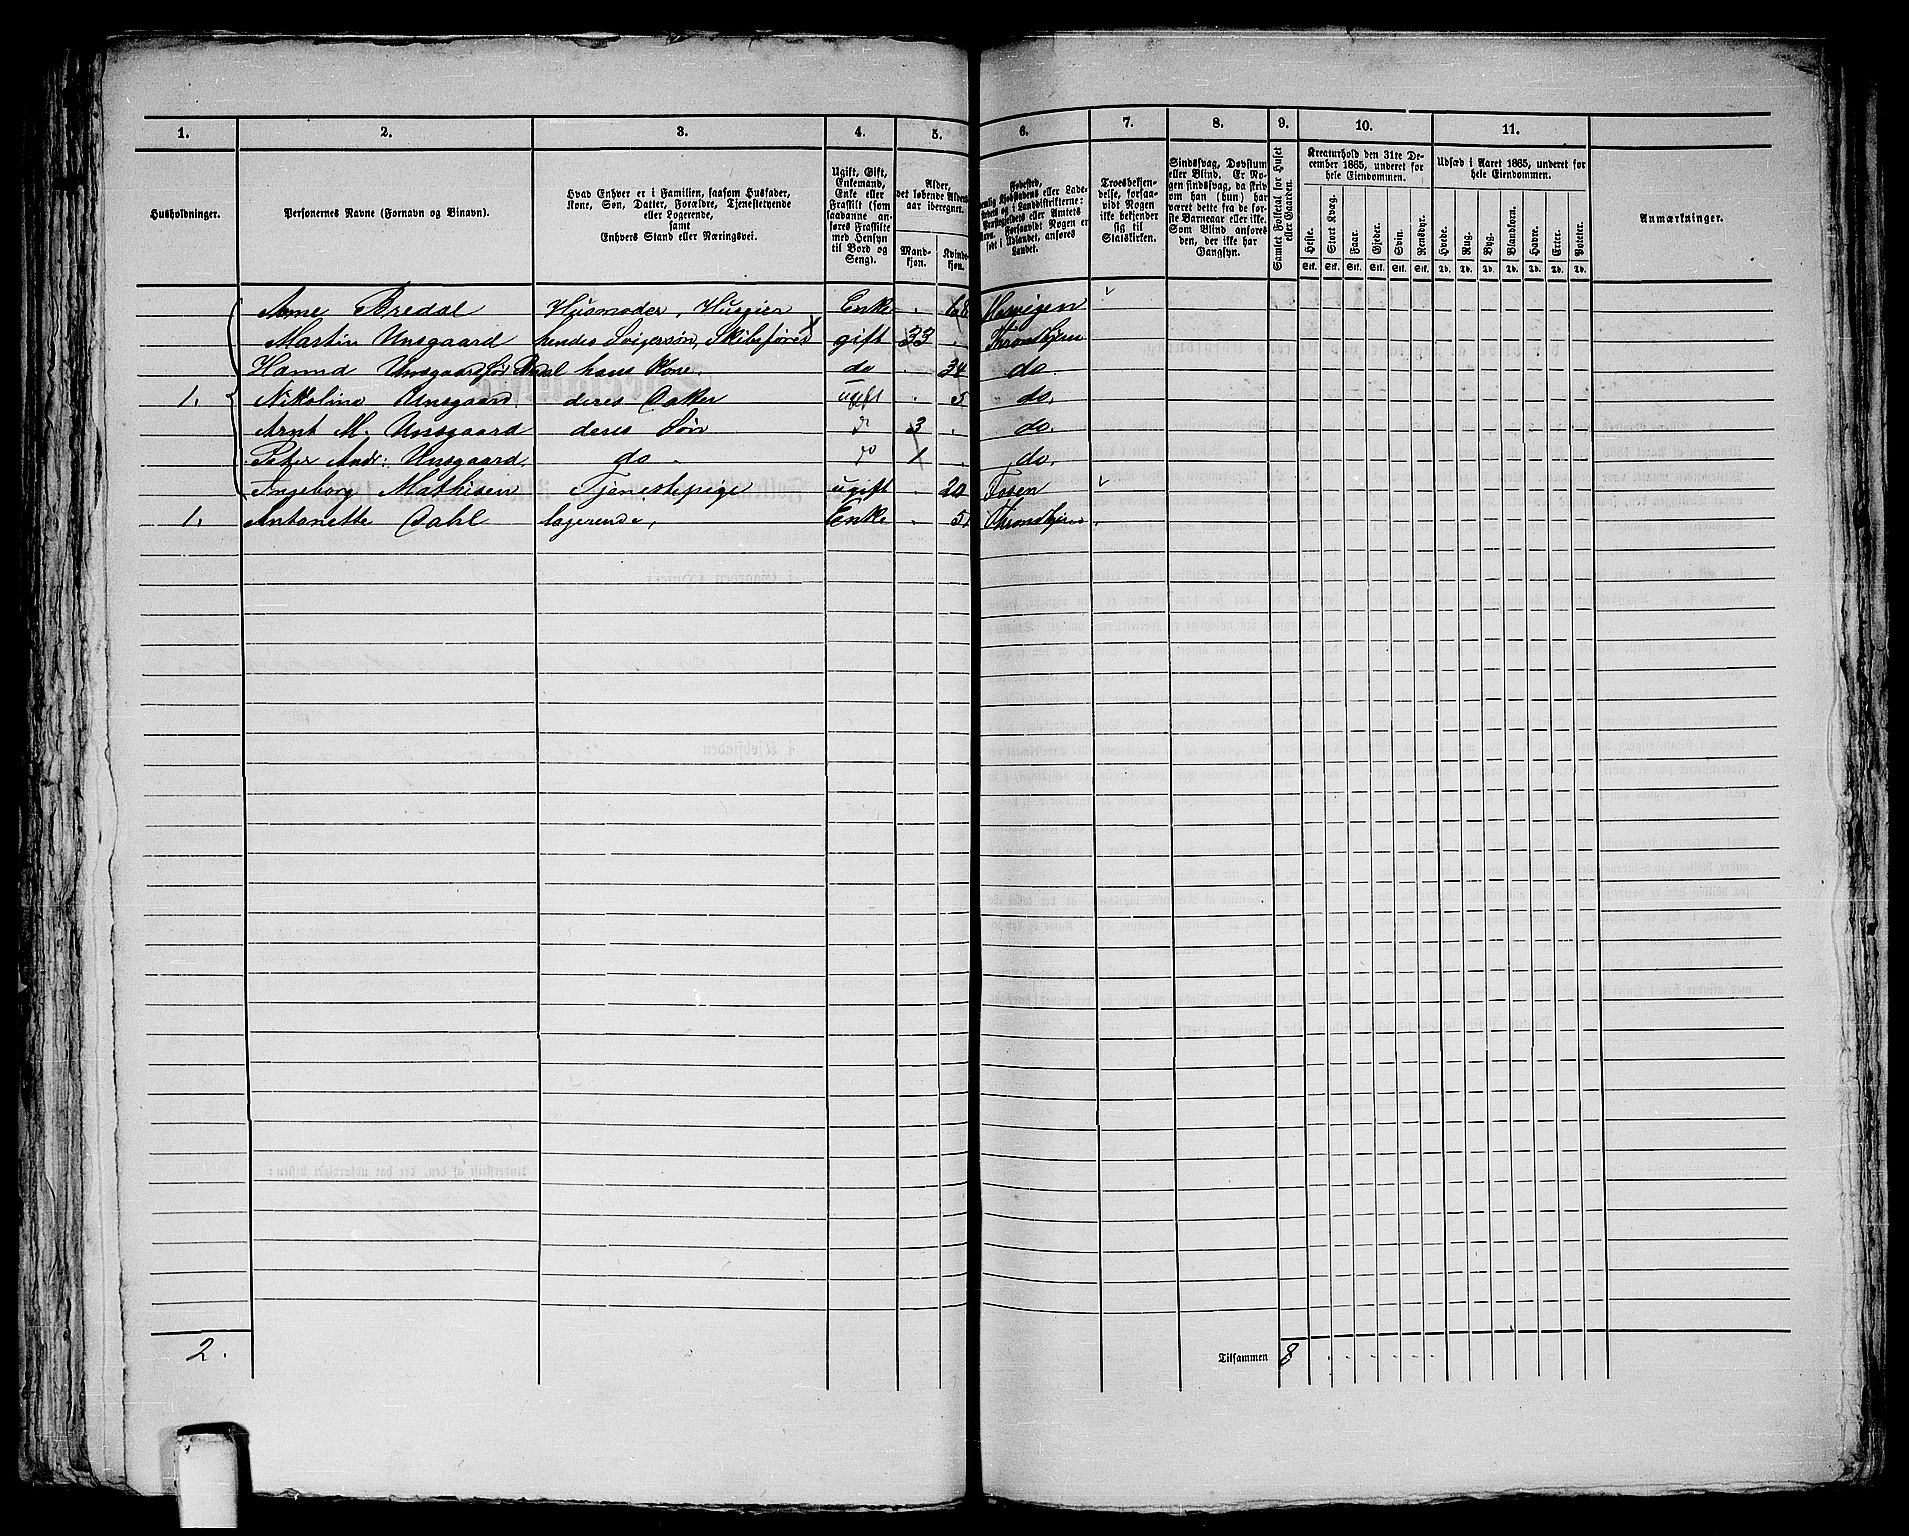 1. 2. 3. 4. 5. 6. 7. 8. 9. 10. 11.
Husholdninger.
Personernes Navne (Fornavn og Binavn).
Hvad Enhver er i Familien, saasom Husfader,
Kone, Søn, Datter, Forældre, Tjenestetyende
eller Logerende,
samt
Enhvers Stand eller Næringsvei.
Ugift, Gift,
Enkemand,
Enke eller
Fraskilt (som
saadanne an-
føres Fraskilte
med Hensyn
til Bord og
Seng).
Alder,
det løbende Alders-
aar iberegnet.
Mand-
kjøn.
Kvinde-
kjøn.
Fødested,
Landet.
Troesbekjen-
delse, forsaa-
vidt Nogen
ikke bekjender
sig til
Statskirken.
Sindssvag, Døvstum
eller Blind. Er No-
gen sindssvag, da skri-
ves om han (hun) har
været dette fra de før-
ste Barneaar eller ikke.
Som Blind anføres
den, der ikke har
Gangsyn.
Samlet Folketal for Huset
eller Gaarden.
Kreaturhold den 31te De-
cember 1865, underet for
hele Eiendommen.
Heste. Stort Kvæg. Faar. Gjeder. Svin. Rensdyr.
Stk. Stk. Stk. Stk. Stk. Stk.
Udsæd i Aaret 1865, underet for
hele Eiendommen.
Hvede. Rug. Byg. Blandkorn. Havre. Erter. Poteter.
Td. Td. Td. Td. Td. Td. Td.
Anmærkninger.
Ane Bredal Husmoder, Huseier Enke . 68
Martin Unsgaard hendes Svigersøn, Skibsfører gift 33 . Throndhjem
Hanna Unsgaard født Bredal hans Kone. do . 34 do.
1. Nikoline Unsgaard. deres Datter ugift . 5 do.
Arnt M. Unsgaard deres Søn do 3 . do.
Peter Andr: Unsgaard. do . do 1 . do.
Ingeborg Mathisen Tjenestepige ugift . 20 Fosen
1. Antonette Dahl logerende, Enke . 51 Throndhjem.
2. Tilsammen 8